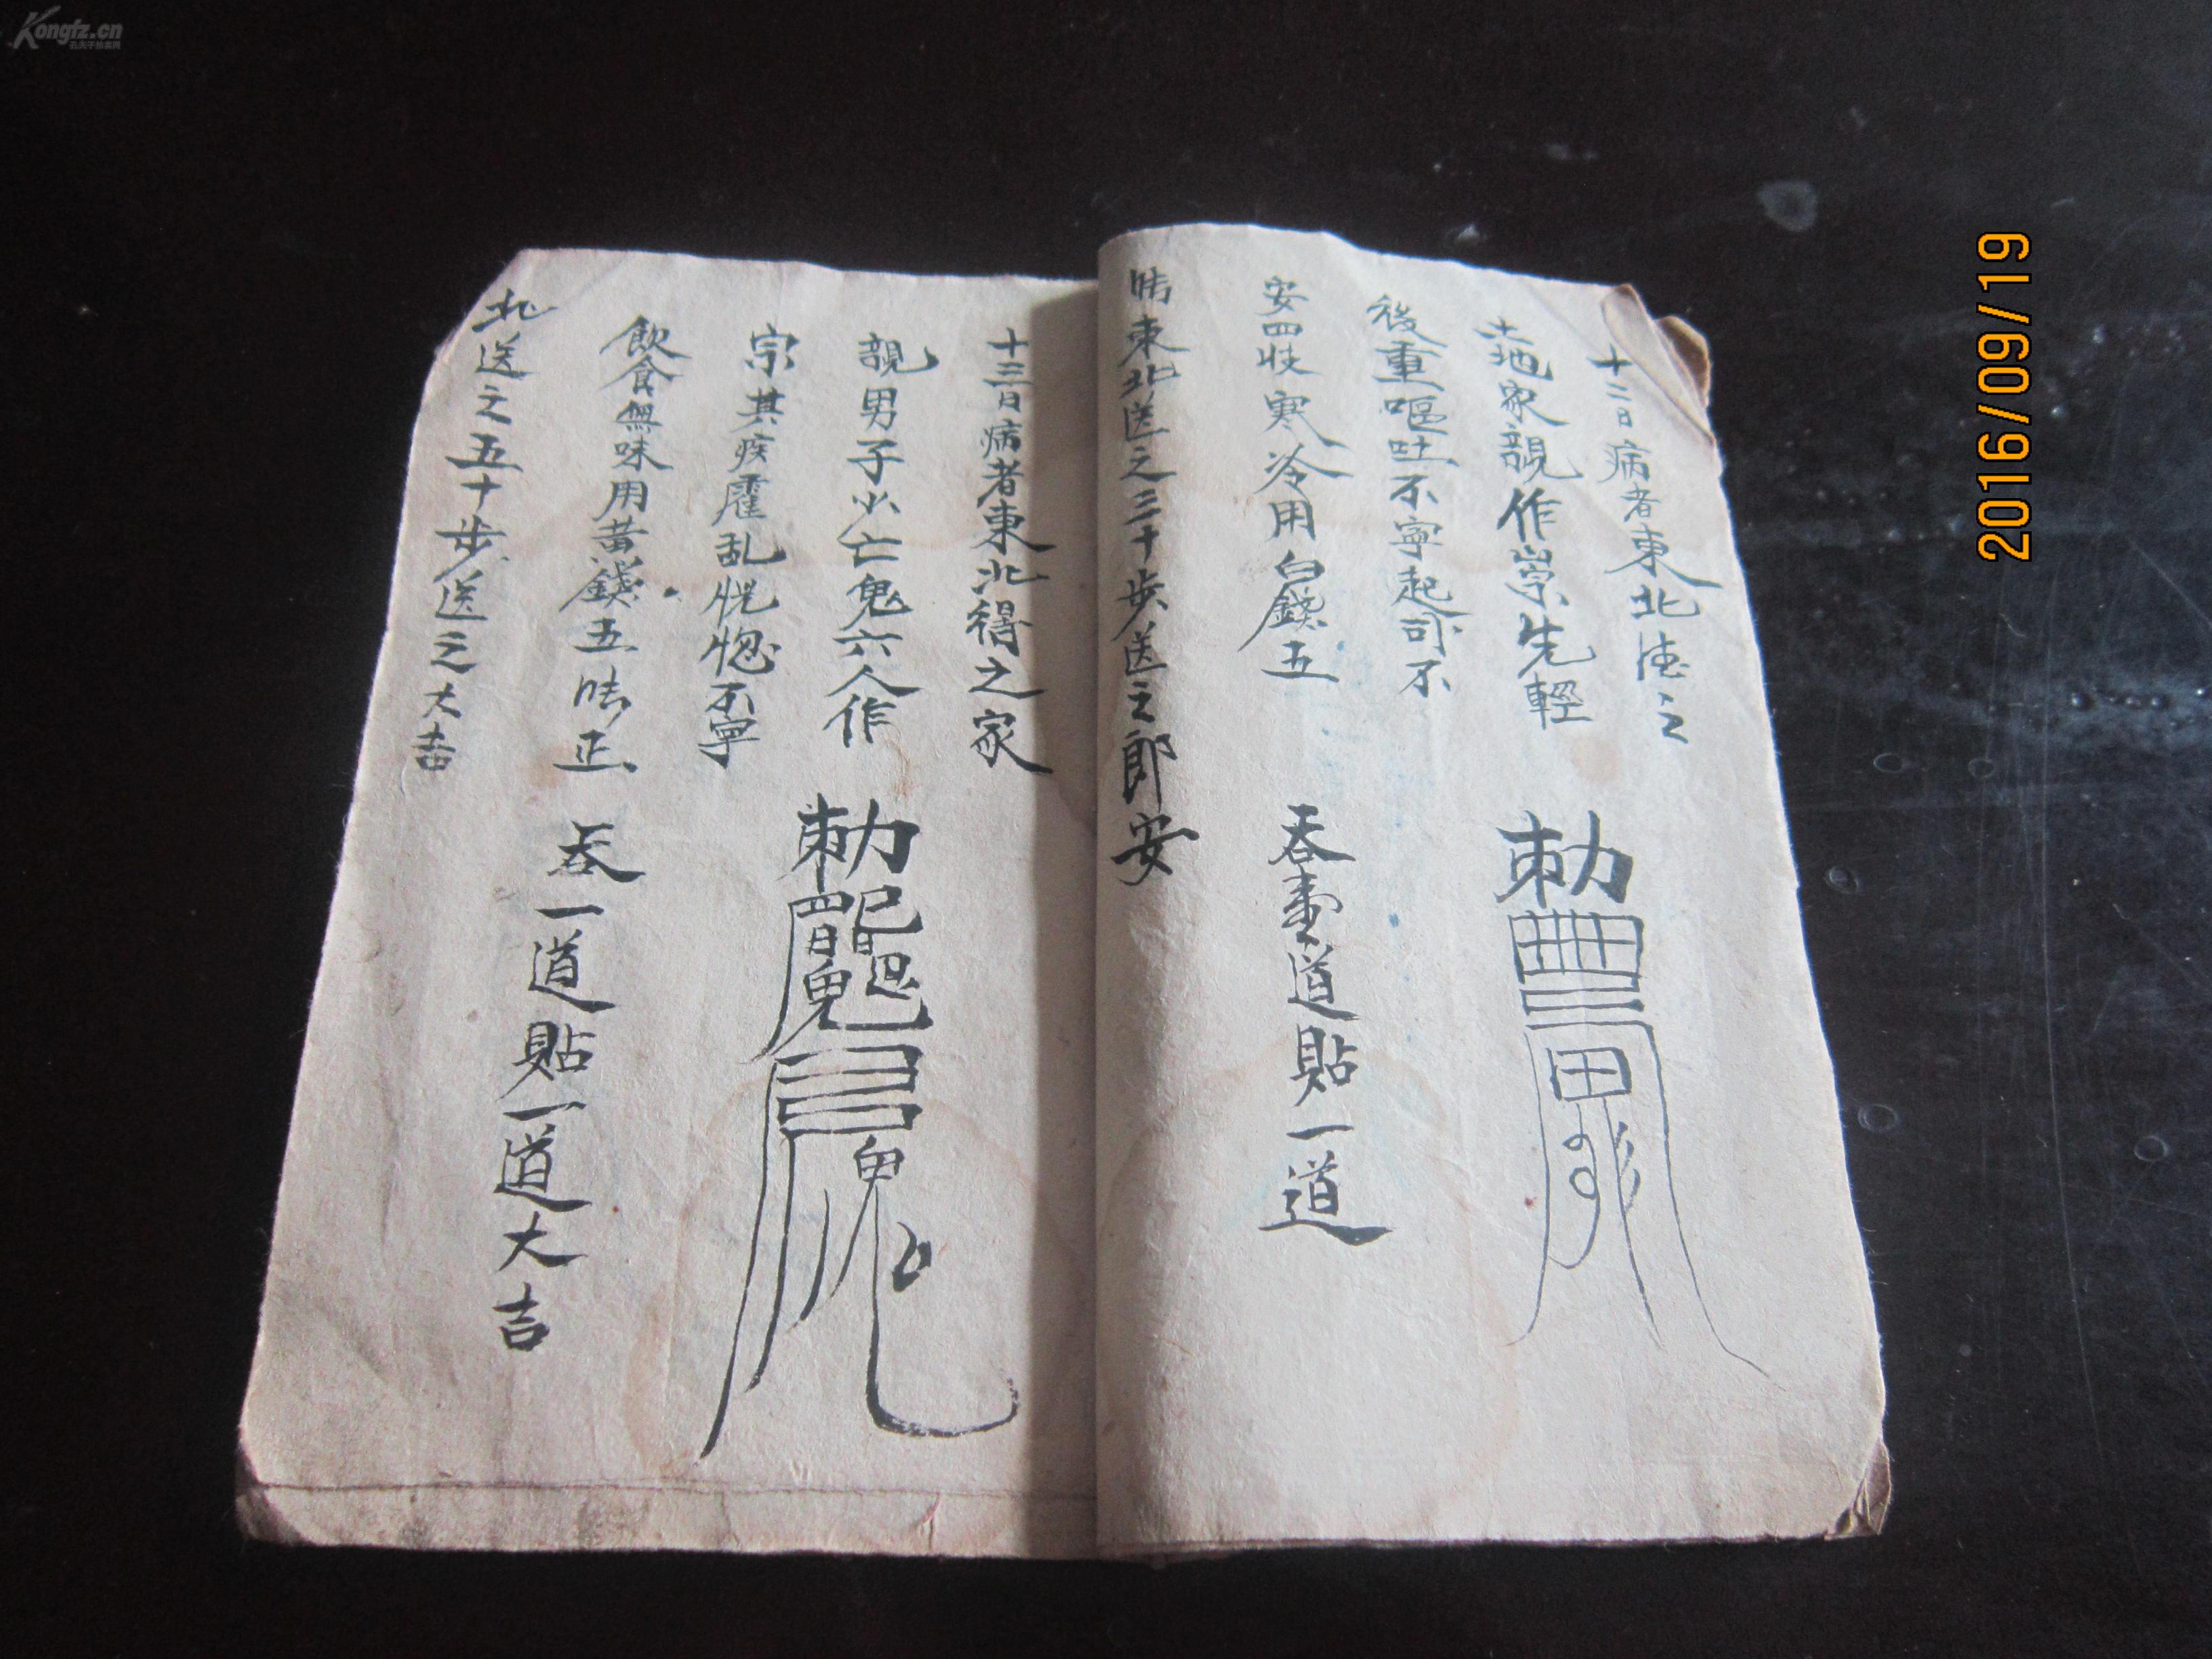 十二日病者東北得之
土地家親作崇先輕
後重嘔吐不寧起卧不
安四肢寒冷用白錢五
帋東北送之三十步送之郎安
勅
吞壹道貼一道
十三日病者東北得之家
親男子少亡鬼六人作
宗其疾霍乱恍惚不寧
飲食無味用黄錢五帋正
北送之五十步送之大吉
勅
吞一道貼一道大吉
2016/09/19
Kongfz.cn